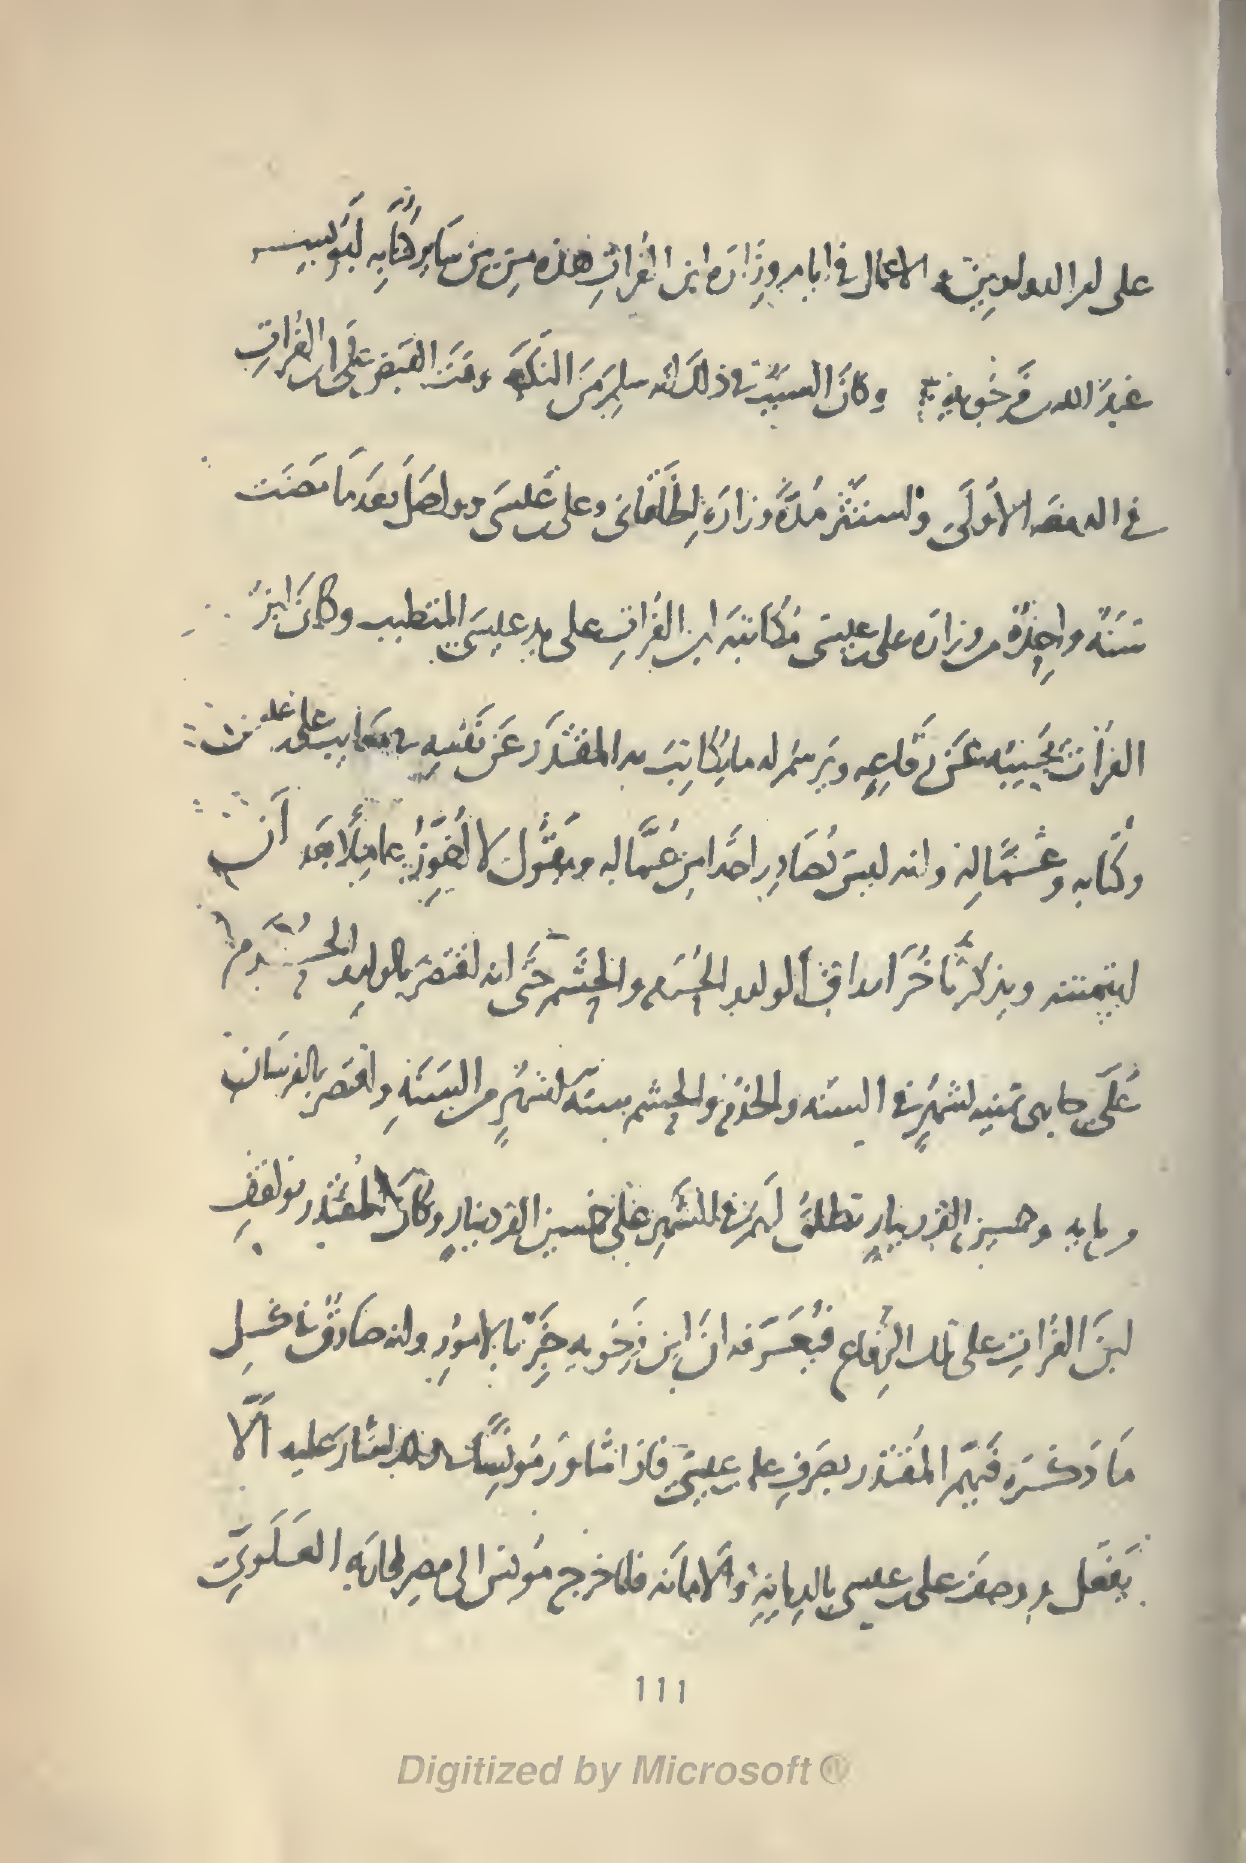 على امر الدواوين والاعمال في ايام وزارة ابن الفرات هذه من بين ساير كتابه ابو بشر
عبد الله بن فرخويه وكان السبب في ذلك انه سلم من النكبة وقت القبض على ابن الفرات
في الدفعه الاولى واستتر مدة وزارة الخاقاني وعلى بن عيسى وواصل بعد ما مضت
سنة واحدة من وزاره على بن عيسى مكاتبة ابن الفرات على يد عيسى المتطبب وكان ابن
الفرات يجيبه عن رقاعه ويرسم له ما يكاتب به المقتدر عن نفسه في معايب على بن عيسى
وكتابه وعماله وانه ليس يصادر احدا من عماله ويقول لا اخون عاملا بعد ان
ايتمنته ويذكر تاخر ارزاق الولد والحرم والحشم حتى انه اقتصر بالولد والحرم
على جارى ثمنيه اشهر في السنه والخدم والحشم بستة اشهر من السنة واقتصر بالفرسان
من مايه وخمسين الف دينار تطلق لهم في الشهر على خمسين الف دينار وكان المقتدر يواقف
ابن الفرات على تلك الرقاع فيعرفه ان ابن فرخويه خبير بالامور وانه صادق في كل
ما ذكره فهم المقتدر بصرف على بن عيسى فاذا شاور مونسا في ذلك اشار عليه الا
يفعل ووصف على بن عيسى بالديانة والامانه فلما خرج مونس الى مصر لمحاربة العلوى
111
Digitized by Microsoft ®